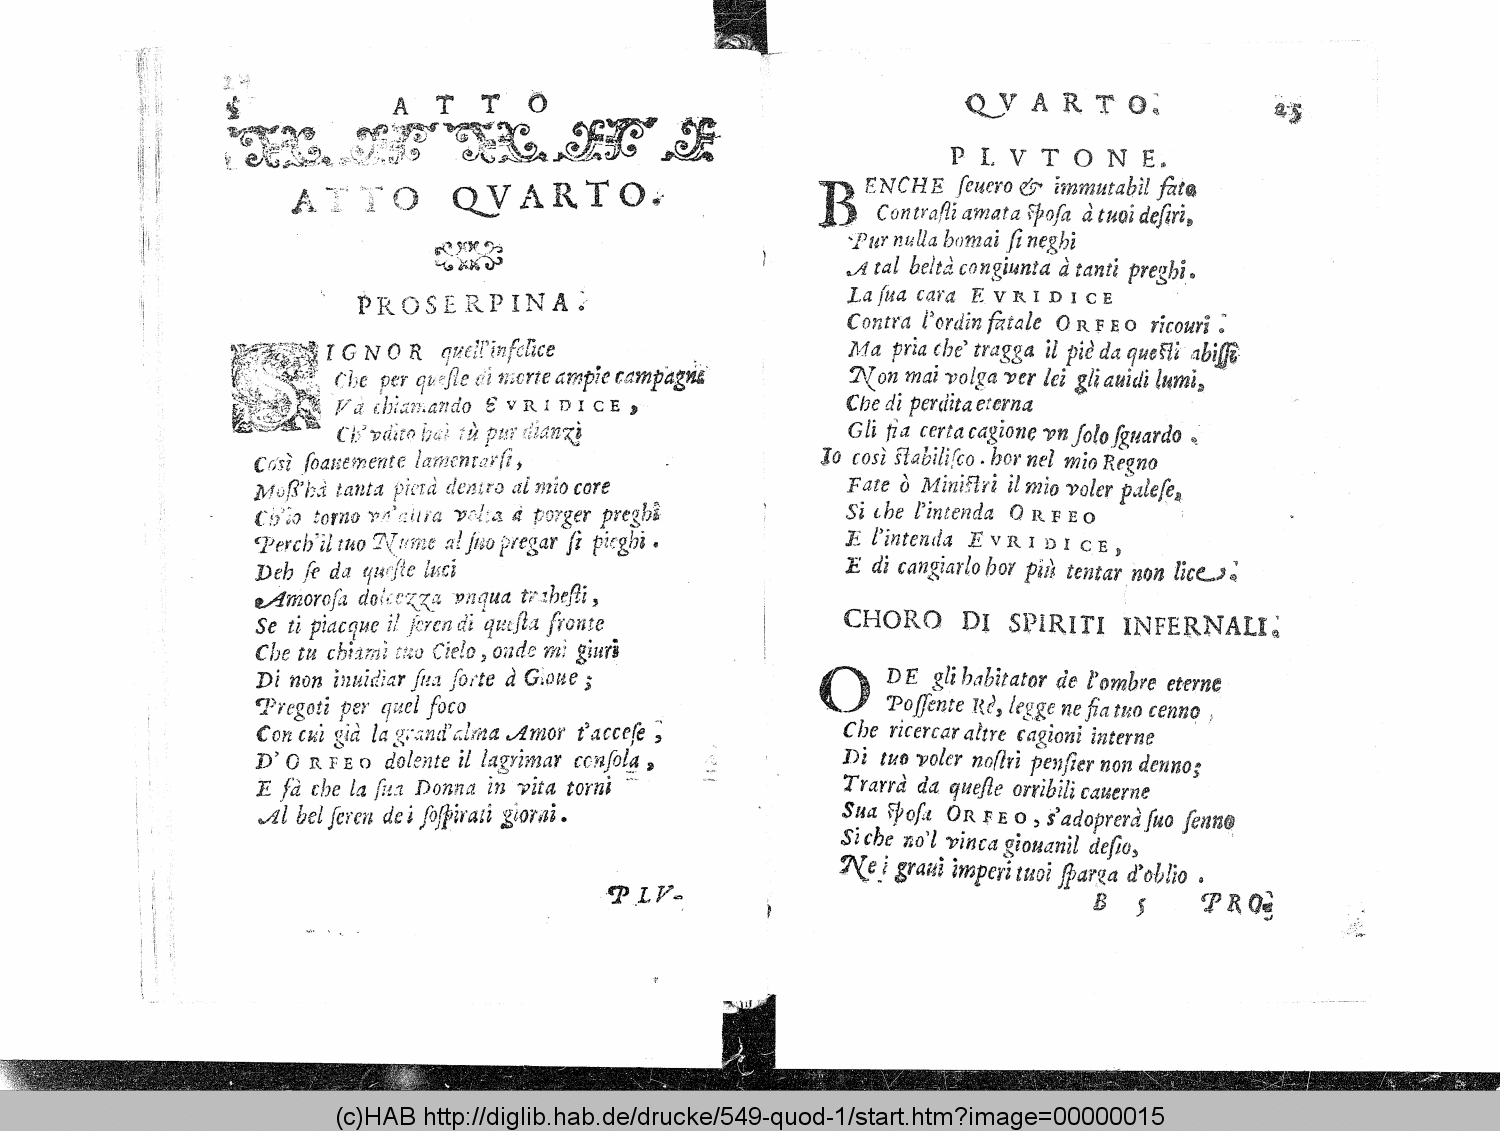 24
ATTO
ATTO QVARTO.
PROSERPINA.
SIGNOR quell'infelice
Che per queſte di morte ampie campagne
Va chiamando EVRIDICE,
Ch'vdito hai tù pur dianzi
Così ſoauemente lamentarſi,
Moſſ'hà tanta pietà dentro al mio core
Ch'io torno vn'altra volta à porger preghi
Perch'il tuo Nume al ſuo pregar ſi pieghi.
Deh ſe da queſte luci
Amoroſa dolcezza vnqua traheſti,
Se ti piacque il ſeren di queſta fronte
Che tu chiami tuo Cielo, onde mi giuri
Di non inuidiar ſua ſorte à Gioue;
Pregoti per quel foco
Con cui già la grand'alma Amor t'acceſe;
D'ORFEO dolente il lagrimar conſola,
E fà che la ſua Donna in vita torni
Al bel ſeren dei ſoſpirati giorni.
PLV-
QVARTO. 25
PLVTONE.
BENCHE ſeuero & immutabil fato
Contraſti amata ſpoſa à tuoi deſiri,
Pur nulla homai ſi neghi
A tal beltà congiunta à tanti preghi.
La ſua cara EVRIDICE
Contra l'ordin fatale ORFEO ricouri.
Ma pria che' tragga il piè da queſti abiſſi
Non mai volga ver lei gli auidi lumi,
Che di perdita eterna
Gli fia certa cagione vn ſolo ſguardo.
Io così ſtabiliſco. hor nel mio Regno
Fate ò Miniſtri il mio voler paleſe,
Si che l'intenda ORFEO
E l'intenda EVRIDICE,
E di cangiarlo hor più tentar non lice.
CHORO DI SPIRITI INFERNALI.
O DE gli habitator de l'ombre eterne
Poſſente Rè, legge ne fia tuo cenno,
Che ricercar altre cagioni interne
Di tuo voler noſtri penſier non denno;
Trarrà da queſte orribili cauerne
Sua ſpoſa ORFEO, s'adoprerà ſuo ſenno
Si che no'l vinca giouanil deſio,
Ne i graui imperi tuoi ſparga d'oblio.
B 5 PRO-
(c)HAB http://diglib.hab.de/drucke/549-quod-1/start.htm?image=00000015